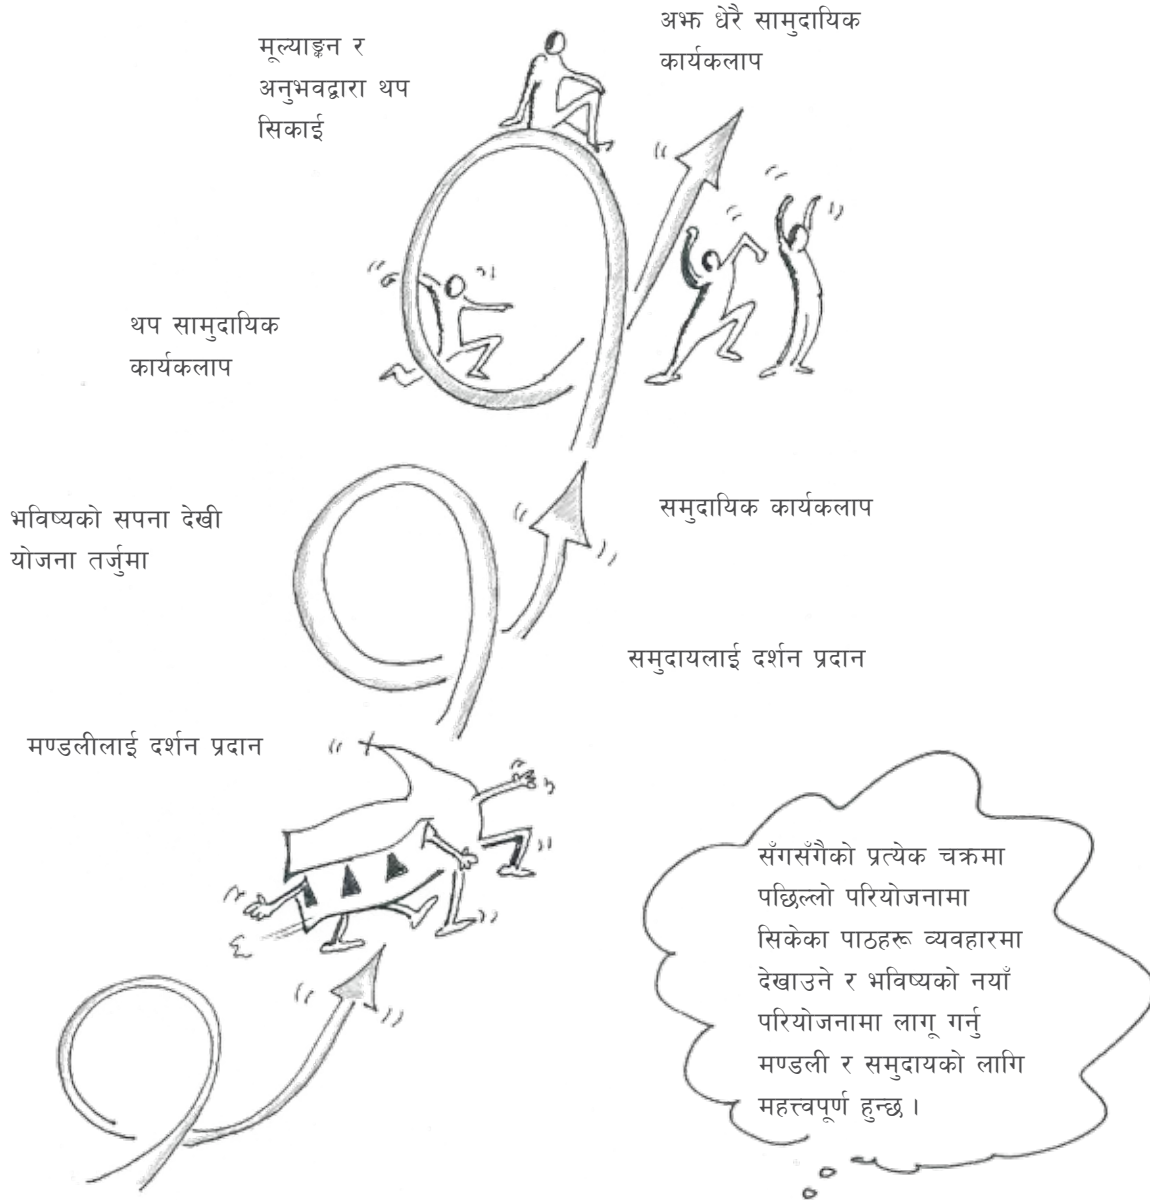 मूल्याङ्कन र
अनुभवद्वारा थप
सिकाई
अझ धेरै सामुदायिक
कार्यकलाप
थप सामुदायिक
कार्यकलाप
भविष्यको सपना देखी
योजना तर्जुमा
समुदायिक कार्यकलाप
समुदायलाई दर्शन प्रदान
मण्डलीलाई दर्शन प्रदान
सँगसँगैको प्रत्येक चक्रमा
पछिल्लो परियोजनामा
सिकेका पाठहरू व्यवहारमा
देखाउने र भविष्यको नयाँ
परियोजनामा लागू गर्नु
मण्डली र समुदायको लागि
महत्त्वपूर्ण हुन्छ ।